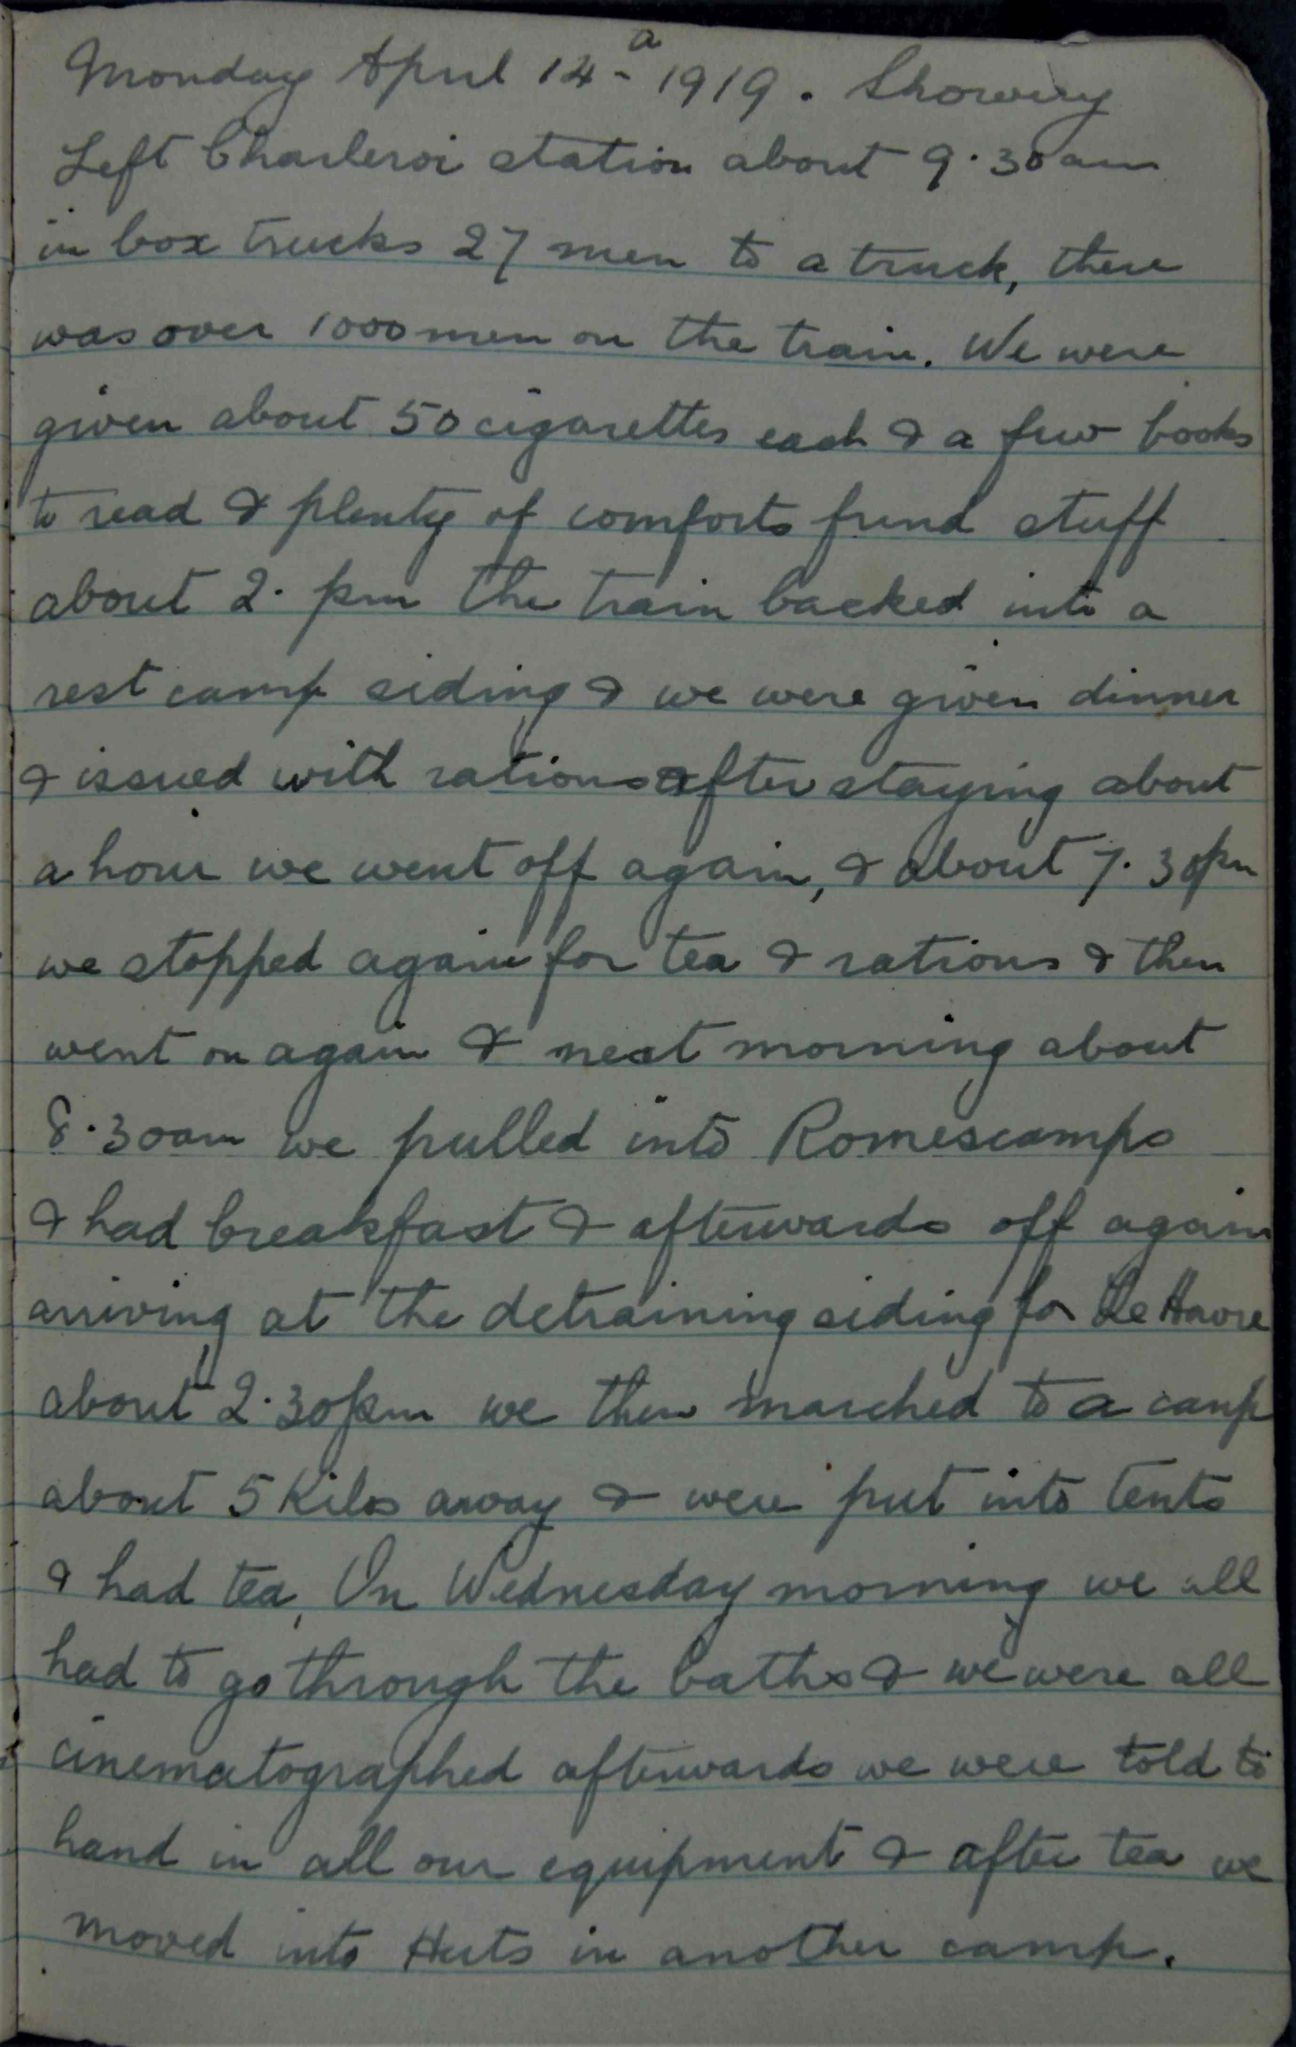 Monday April 14th 1919. Showery
Left Charleroi station about 9.30am
in box trucks 27 men to a truck, there
was over 1000 men on the train. We were
given about 50 cigarettes each & a few books
to read & plenty of comforts fund stuff
about 2. pm the train backed into a
rest camp siding & we were given dinner
& issued with rations after staying about
a hour we went off again, & about 7.30pm
we stopped again for tea & rations & then
went on again & next morning about
8.30am we pulled into Romescamps
& had breakfast & afterwards off again
arriving at the detraining siding for Le Havre
about 2.30pm we then marched to a camp
about 5 Kilos away & were put into tents
& had tea, On Wednesday morning we all
had to go through the baths & we were all
cinematographed afterwards we were told to
hand in all our equipment & after tea we
moved into Huts in another camp.